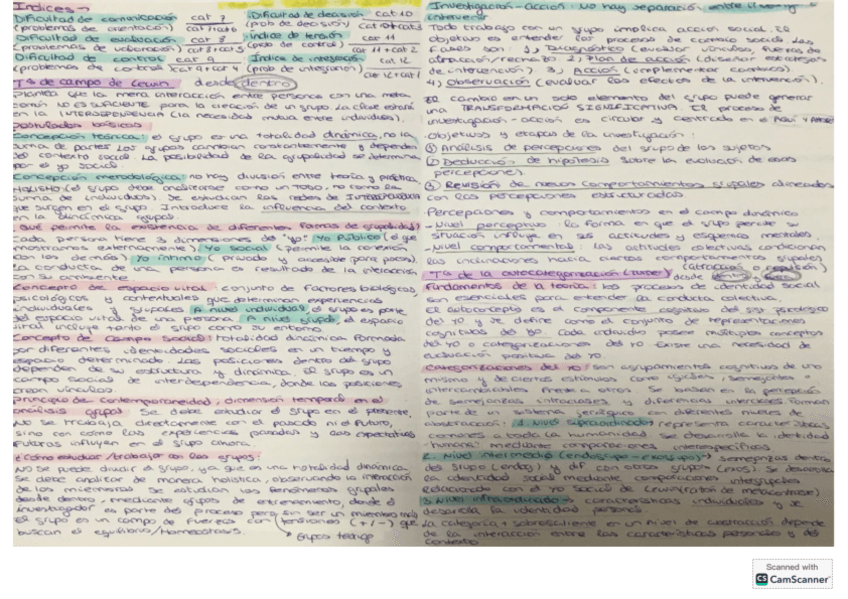 Indices →
Dificultad de comunicación cat 7
(problemas de orientación) cat 7+cat 6
Dificultad de evaluación cat 8
(problemas de valoración) cat 8+cat 5
Dificultad de control cat 9
(problemas de control) cat 9+cat 4
Dificultad de decisión cat 10
(prob de decisión) cat 10+cat 3
Índice de tensión cat 11
(prob de control) cat 11+cat 2
Índice de integración cat 12
(prob de integración) cat 12+cat 1
Tª de campo de Lewin desde dentro
Plantea que la mera interacción entre personas con una meta
común NO ES SUFICIENTE para la creación de un grupo. La clave estará
en la INTERDEPENDENCIA (la necesidad mutua entre individuos).
Postulados básicos
Concepción teórica: el grupo es una totalidad dinámica, no la
suma de partes. Los grupos cambian constantemente y dependen
del contexto social. La posibilidad de la grupalidad se determina
por el yo social
Concepción metodológica: no hay división entre teoría y práctica.
HOLISMO (el grupo debe analizarse como un TODO, no como la
suma de individuos). Se estudian las redes de INTERDEPENDENCIA
que surgen en el grupo. Introduce la influencia del contexto
en la dinámica grupal.
¿Qué permite la existencia de diferentes formas de grupalidad?
Cada persona tiene 3 dimensiones de "yo": Yo público (el que
mostramos externamente) Yo social (permite la conexión
con los demás) Yo íntimo (privado y accesible para pocos).
La conducta de una persona es resultado de la interacción
con su ambiente
Concepto de espacio vital: conjunto de factores biológicos,
psicológicos y contextuales que determinan experiencias
individuales y grupales. A nivel individual, el grupo es parte
del espacio vital de una persona. A nivel grupal, el espacio
vital incluye tanto el grupo como su entorno.
Concepto de campo social: totalidad dinámica formada
por diferentes identidades sociales en un tiempo y
espacio determinado. Las posiciones dentro del grupo
dependen de su estructura y dinámica. El grupo es un
campo social de interdependencia, donde las posiciones
crean vínculos.
Principio de contemporaneidad: dimensión temporal en el
análisis grupal. Se debe estudiar el grupo en el presente,
No se trabaja directamente con el pasado ni el futuro,
sino con cómo las experiencias pasadas y las expectativas
futuras influyen en el grupo ahora.
¿Cómo estudiar/trabajar con los grupos?
No se puede dividir el grupo, ya que es una totalidad dinámica.
Se debe analizar de manera holística, observando la interacción
de los miembros. Se estudian los fenómenos grupales
desde dentro, mediante grupos de entrenamiento, donde el
investigador es parte del proceso pero sin ser un miembro más
El grupo es un campo de fuerzas con tensiones (+/-) que
buscan el equilibrio/Homeostasis.
Grupos teóricos
Investigación-acción: No hay separación entre investigar y
intervenir
Todo trabajo con un grupo implica acción social. El
objetivo es entender los procesos de cambio social. Las
fases son: 1) Diagnóstico (evaluar vínculos, fuerzas de
atracción/rechazo) 2) Plan de acción (diseñar estrategias
de intervención) 3) Acción (implementar cambios)
4) Observación (evaluar los efectos de la intervención).
El cambio en un solo elemento del grupo puede generar
una TRANSFORMACIÓN SIGNIFICATIVA. El proceso de
investigación-acción es circular y centrado en el Aquí y Ahora
Objetivos y etapas de la investigación:
① Análisis de percepciones del grupo de los sujetos
② Deducción de hipótesis sobre la evolución de esas
percepciones.
③ Revisión de nuevos comportamientos grupales alineados
con las percepciones estructuradas.
Percepciones y comportamientos en el campo dinámico
- Nivel perceptivo: la forma en que el grupo percibe su
situación influye en sus actitudes y esquemas mentales
- Nivel comportamental: las actitudes colectivas condicionan
las inclinaciones hacia ciertos comportamientos grupales
(atracción o repulsión)
Tª de la autocategorización (Turner) desde
Fundamentos de la teoría: los procesos de identidad social
son esenciales para entender la conducta colectiva.
El autoconcepto es el componente cognitivo del sist psicológico
del yo y se define como el conjunto de representaciones
cognitivas del yo. Cada individuo posee múltiples conceptos
del yo o categorizaciones del yo. Existe una necesidad de
evaluación positiva del yo.
Categorizaciones del yo: son agrupamientos cognitivos de uno
mismo y de ciertos estímulos como iguales, semejantes e
intercambiables frente a otros. Se basan en la percepción
de semejanzas intraclases y diferencias interclases. Forman
parte de un sistema jerárquico con diferentes niveles de
abstracción: 1. Nivel supraordinado: representa características
comunes a toda la humanidad. Se desarrolla la identidad
humana mediante comparaciones interespecíficas
2. Nivel intermedio (endogrupo-exogrupo) → semejanzas dentro
del grupo (endo) y dif con otros grupos (exo). Se desarrolla
la identidad social mediante comparaciones intergrupales
3. Nivel infraordinado → características individuales y se
desarrolla la identidad personal
La categoría + sobresaliente en un nivel de abstracción depende
de la interacción entre las características personales y del
contexto.
Scanned with
CS CamScanner